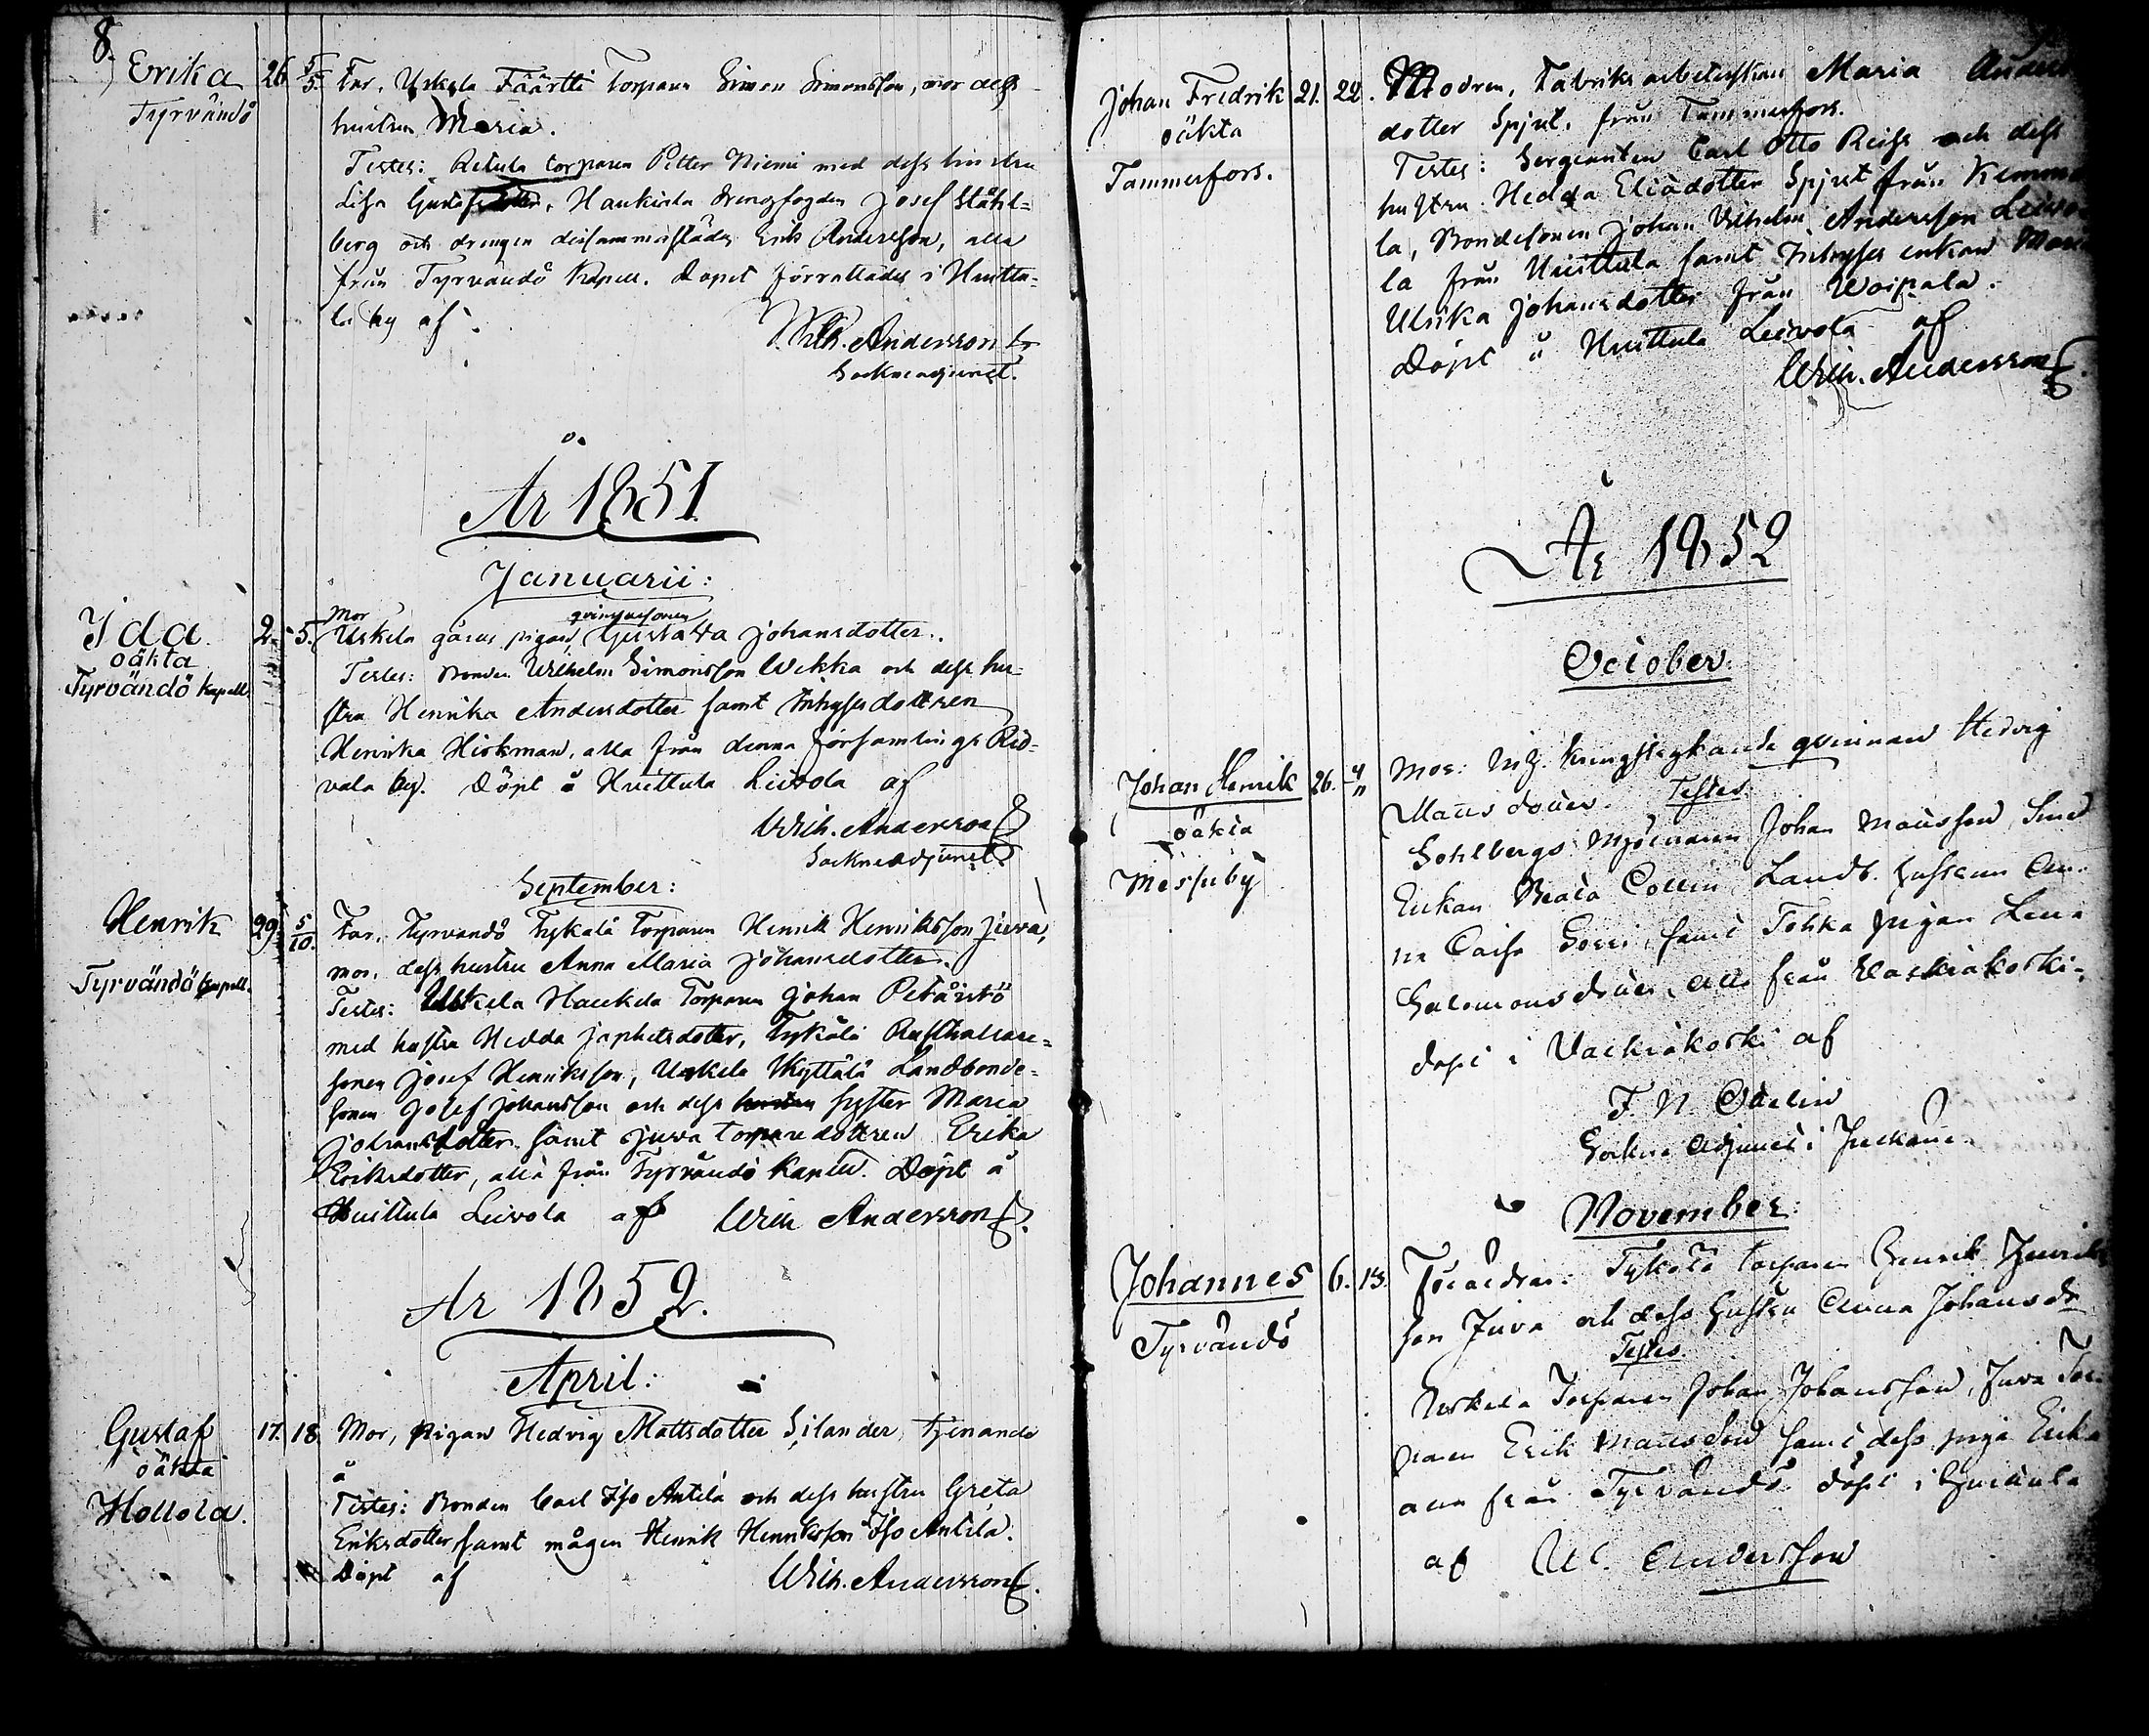 8.
Erika 26. 5/5. Far, Uskela Fäärtti Torparn Simon Simonsson, mor dess
Tyrvändö hustru Maria.
Testes: Retula torparen Petter Niemi med dess hustru
Lisa, Haukiala drengfogden Josef Ståhl=
berg och drengen dersammastädes Erik Andersson, alla
från Tyrvändö Kapell. Dopet förrättades i Huittu=
la by af
Wilh. Andersson
Sockneadjunct.
År 1851.
Januarii:
Mor qvinspersonen
Ida 2. 5. Uskela gårds pigan, Gustava Johansdotter.
oäkta Testes: Bonden Wilhelm Simonsson Wekka och dess hu=
Tyrvändö kapell. stru Henrika Andersdotter samt Inhyses dottren
Henrika Hickman, alla från denna församlings Rid=
vala by. Döpt å Huittula Leivola af
Wilh. Andersson
Sockneadjunct
September:
Henrik 29. 5/10. Far, Tyrvändö Tykölä Torparn Henrik Henriksson Juva,
mor, dess hustru Anna Maria Johansdotter.
Tyrvändö kapell. Testes: Uskela Haukela Torparen Johan Petäistö
med hustru Hedda Japhetsdotter, Tykölä Rusthållare=
sonen Josef Henriksson, Uskela Kyttälä Landbonde=
sonen Josef Johansson och dess syster Maria
Johansdotter samt Juva torparedottren Erika
Eriksdotter, alla från Tyrvändö Kapell. Döpt å
Huittula Leivola af Wilh Andersson
År 1852.
April:
Gustaf 17. 18. Mor, pigan Hedvig Mattsdotter Silander, tjenande
oäkta å
Hollola. Testes: Bonden Carl Iso Antila och dess hustru Greta
Eriksdotter, samt mågen Henrik Henriksson Iso Antila.
Döpt af Wilh. Andersson
Johan Fredrik 21. 22. Modren, Fabriksarbeterskan Maria
oäkta dotter Spjut, från Tammerfors.
Tammerfors. Testes: Sergeanten Carl Otto Reiss och dess
hustru Hedda Eliædotter Spjut från
la, Bondesonen Johan Wilhelm Andersson
la från Huittula samt Inhyses enkan
Ulrika Johansdotter från Woipala.
Döpt å Huittula Leivola af
Wilh. Andersson
År 1852
October.
Johan Henrik 26. 4/11 Mor: kringstrykande qvinnan Hedvig
oäkta Mattsdotter. Testes.
Messuby Sohlbergs Mjölnaren Johan Mattsson,
Enkan Beata Collin, Landb. hustrun An=
na Caisa Sorri, samt Tohka pigan Lena
Salomonsdotter, alla från Valkiakoski=
döpt i Valkiakoski af
F. N. Odelin
Sockne Adjunct i
November
Johannes 6. 13. Föräldrar: Tykölä torparen Henrik Henriks
Tyrvändö son Juva och dess hustru Anna Johansdr
Testes.
Uskela Torparen Johan Johansson, Juva Tor=
paren Erik Mattsson samt dess piga Erika
alla från Tyrvändö. Döpt i Huittula
af W. Andersson